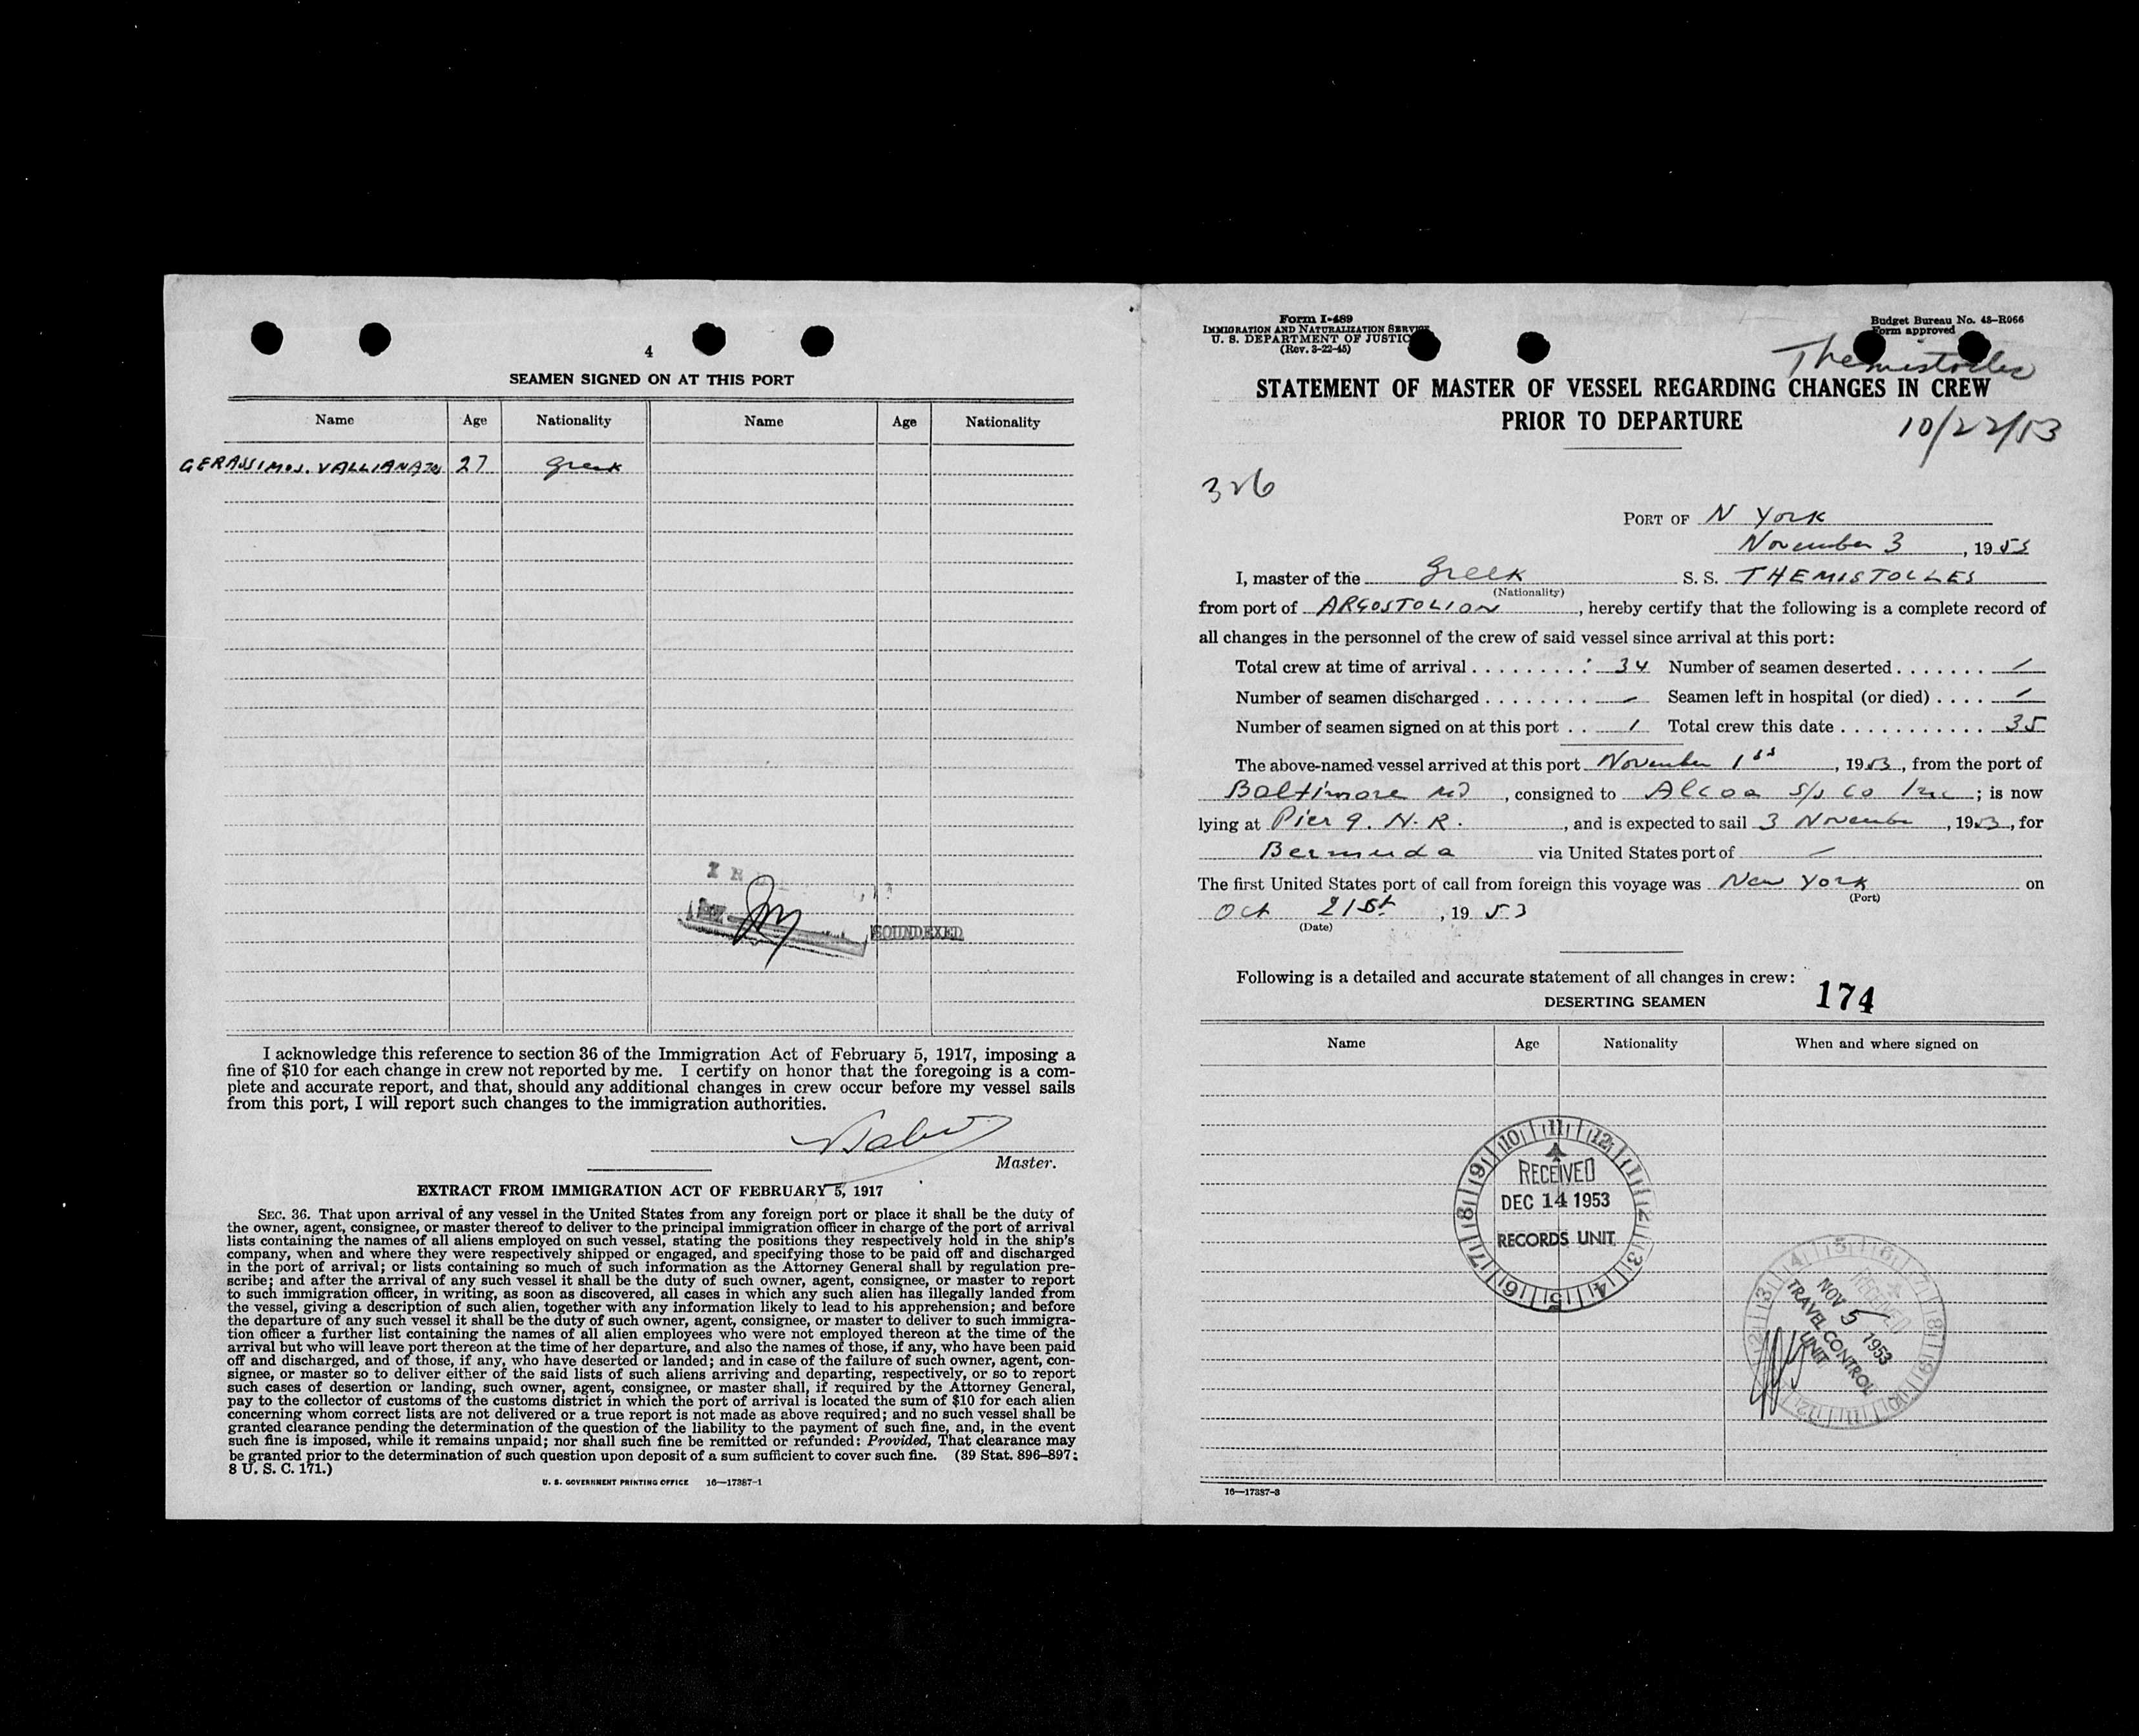 4
SEAMEN SIGNED ON AT THIS PORT
Name Age Nationality Name Age Nationality
GERASSIMOS. VALLIANATOS 27 Greek
SOUNDEXED
I acknowledge this reference to section 36 of the Immigration Act of February 5, 1917, imposing a
fine of $10 for each change in crew not reported by me. I certify on honor that the foregoing is a com-
plete and accurate report, and that, should any additional changes in crew occur before my vessel sails
from this port, I will report such changes to the immigration authorities.
Master.
EXTRACT FROM IMMIGRATION ACT OF FEBRUARY 5, 1917
SEC. 36. That upon arrival of any vessel in the United States from any foreign port or place it shall be the duty of
the owner, agent, consignee, or master thereof to deliver to the principal immigration officer in charge of the port of arrival
lists containing the names of all aliens employed on such vessel, stating the positions they respectively hold in the ship's
company, when and where they were respectively shipped or engaged, and specifying those to be paid off and discharged
in the port of arrival; or lists containing so much of such information as the Attorney General shall by regulation pre-
scribe; and after the arrival of any such vessel it shall be the duty of such owner, agent, consignee, or master to report
to such immigration officer, in writing, as soon as discovered, all cases in which any such alien has illegally landed from
the vessel, giving a description of such alien, together with any information likely to lead to his apprehension; and before
the departure of any such vessel it shall be the duty of such owner, agent, consignee, or master to deliver to such immigra-
tion officer a further list containing the names of all alien employees who were not employed thereon at the time of the
arrival but who will leave port thereon at the time of her departure, and also the names of those, if any, who have been paid
off and discharged, and of those, if any, who have deserted or landed; and in case of the failure of such owner, agent, con-
signee, or master so to deliver either of the said lists of such aliens arriving and departing, respectively, or so to report
such cases of desertion or landing, such owner, agent, consignee, or master shall, if required by the Attorney General,
pay to the collector of customs of the customs district in which the port of arrival is located the sum of $10 for each alien
concerning whom correct lists are not delivered or a true report is not made as above required; and no such vessel shall be
granted clearance pending the determination of the question of the liability to the payment of such fine, and, in the event
such fine is imposed, while it remains unpaid; nor shall such fine be remitted or refunded: Provided, That clearance may
be granted prior to the determination of such question upon deposit of a sum sufficient to cover such fine. (39 Stat. 896–897;
8 U. S. C. 171.)
U. S. GOVERNMENT PRINTING OFFICE 16—17387-1
Form I-489
IMMIGRATION AND NATURALIZATION SERVICE
U. S. DEPARTMENT OF JUSTIC
(Rev. 3-22-45)
Budget Bureau No. 43–R066
Form approved
Themistocles
STATEMENT OF MASTER OF VESSEL REGARDING CHANGES IN CREW
PRIOR TO DEPARTURE
10/22/53
326
PORT OF N York
November 3, 1953
I, master of the Greek S. S. THEMISTOCLES
(Nationality)
from port of ARGOSTOLION, hereby certify that the following is a complete record of
all changes in the personnel of the crew of said vessel since arrival at this port:
Total crew at time of arrival . . . . . . . . . 34 Number of seamen deserted . . . . . . . /
Number of seamen discharged . . . . . . . . – Seamen left in hospital (or died) . . . . /
Number of seamen signed on at this port . . 1 Total crew this date . . . . . . . . . . . . 35
The above-named vessel arrived at this port November 1st, 1953, from the port of
Baltimore MD, consigned to Alcoa S/S Co Inc; is now
lying at Pier 9. N. R., and is expected to sail 3 November, 1953, for
Bermuda via United States port of –
The first United States port of call from foreign this voyage was New York on
(Port)
Oct 21st, 1953
(Date)
Following is a detailed and accurate statement of all changes in crew:
DESERTING SEAMEN 174
Name Age Nationality When and where signed on
10 11 12 1 2 3 4 5 6 7 8 9
RECEIVED
DEC 14 1953
RECORDS UNIT
RECEIVED
NOV 5 1953
TRAVEL CONTROL
UNIT
16—17387-3